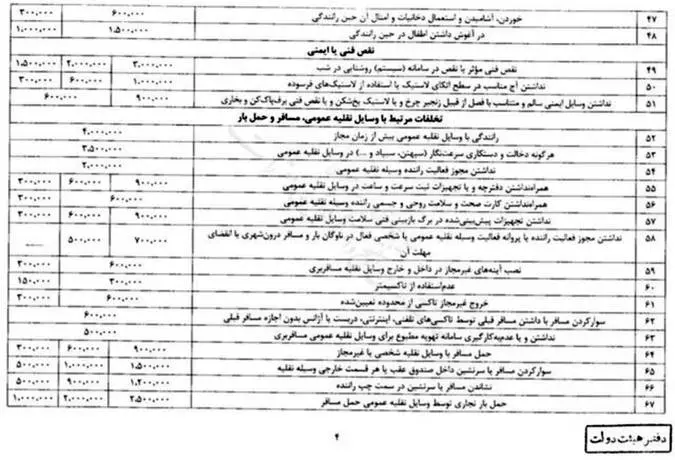 ۴۷ خوردن، آشامیدن و استعمال دخانیات و امثال آن حین رانندگی ۶۰۰,۰۰۰ ۳۰۰,۰۰۰
۴۸ در آغوش داشتن اطفال در حین رانندگی ۱,۵۰۰,۰۰۰ ۱,۰۰۰,۰۰۰
نقص فنی یا ایمنی
۴۹ نقص فنی مؤثر یا نقص در سامانه (سیستم) روشنایی در شب ۳,۰۰۰,۰۰۰ ۲,۰۰۰,۰۰۰ ۱,۵۰۰,۰۰۰
۵۰ نداشتن آج مناسب در سطح اتکای لاستیک یا استفاده از لاستیک‌های فرسوده ۱,۰۰۰,۰۰۰ ۶۰۰,۰۰۰ ۳۰۰,۰۰۰
۵۱ نداشتن وسایل ایمنی سالم و متناسب با فصل از قبیل زنجیر چرخ و یا لاستیک یخ‌شکن و یا نقص فنی برف‌پاک‌کن و بخاری ۹۰۰,۰۰۰ ۶۰۰,۰۰۰
تخلفات مرتبط با وسایل نقلیه عمومی، مسافر و حمل بار
۵۲ رانندگی با وسایل نقلیه عمومی بیش از زمان مجاز ۴,۰۰۰,۰۰۰
۵۳ هرگونه دخالت و دستکاری سرعت‌نگار (سپهتن، سیپاد و ...) در وسایل نقلیه عمومی ۳,۵۰۰,۰۰۰
۵۴ نداشتن مجوز فعالیت راننده وسیله نقلیه عمومی ۲,۰۰۰,۰۰۰
۵۵ همراه‌نداشتن دفترچه و یا تجهیزات ثبت سرعت و ساعت در وسایل نقلیه عمومی ۹۰۰,۰۰۰ ۶۰۰,۰۰۰ ۳۰۰,۰۰۰
۵۶ همراه‌نداشتن کارت صحت و سلامت روحی و جسمی راننده وسیله نقلیه عمومی ۶۰۰,۰۰۰ ۳۰۰,۰۰۰
۵۷ نداشتن تجهیزات پیش‌بینی‌شده در برگ بازبینی فنی سلامت وسایل نقلیه عمومی ۹۰۰,۰۰۰ ۶۰۰,۰۰۰ ۳۰۰,۰۰۰
۵۸ نداشتن مجوز فعالیت راننده یا پروانه فعالیت وسیله نقلیه عمومی یا شخصی فعال در ناوگان بار و مسافر درون‌شهری یا انقضای ۷۰۰,۰۰۰ ۵۰۰,۰۰۰
مهلت آن
۵۹ نصب آینه‌های غیرمجاز در داخل و خارج وسایل نقلیه مسافربری ۶۰۰,۰۰۰ ۳۰۰,۰۰۰
۶۰ عدم‌استفاده از تاکسیمتر ۳۰۰,۰۰۰ ۱۵۰,۰۰۰
۶۱ خروج غیرمجاز تاکسی از محدوده تعیین‌شده ۶۰۰,۰۰۰ ۳۰۰,۰۰۰
۶۲ سوارکردن مسافر با داشتن مسافر قبلی توسط تاکسی‌های تلفنی، اینترنتی، دربست یا آژانس بدون اجازه مسافر قبلی ۶۰۰,۰۰۰
۶۳ نداشتن و یا عدم‌به‌کارگیری سامانه تهویه مطبوع برای وسایل نقلیه عمومی مسافربری ۵۰۰,۰۰۰
۶۴ حمل مسافر با وسایل نقلیه شخصی یا غیرمجاز ۹۰۰,۰۰۰ ۶۰۰,۰۰۰ ۳۰۰,۰۰۰
۶۵ سوارکردن مسافر یا سرنشین داخل صندوق عقب یا هر قسمت خارجی وسیله نقلیه ۱,۵۰۰,۰۰۰ ۱,۰۰۰,۰۰۰ ۵۰۰,۰۰۰
۶۶ نشاندن مسافر یا سرنشین در سمت چپ راننده ۱,۲۰۰,۰۰۰ ۹۰۰,۰۰۰ ۵۰۰,۰۰۰
۶۷ حمل بار تجاری توسط وسایل نقلیه عمومی حمل مسافر ۲,۵۰۰,۰۰۰ ۲,۰۰۰,۰۰۰ ۱,۰۰۰,۰۰۰
۴
دفتر هیئت دولت